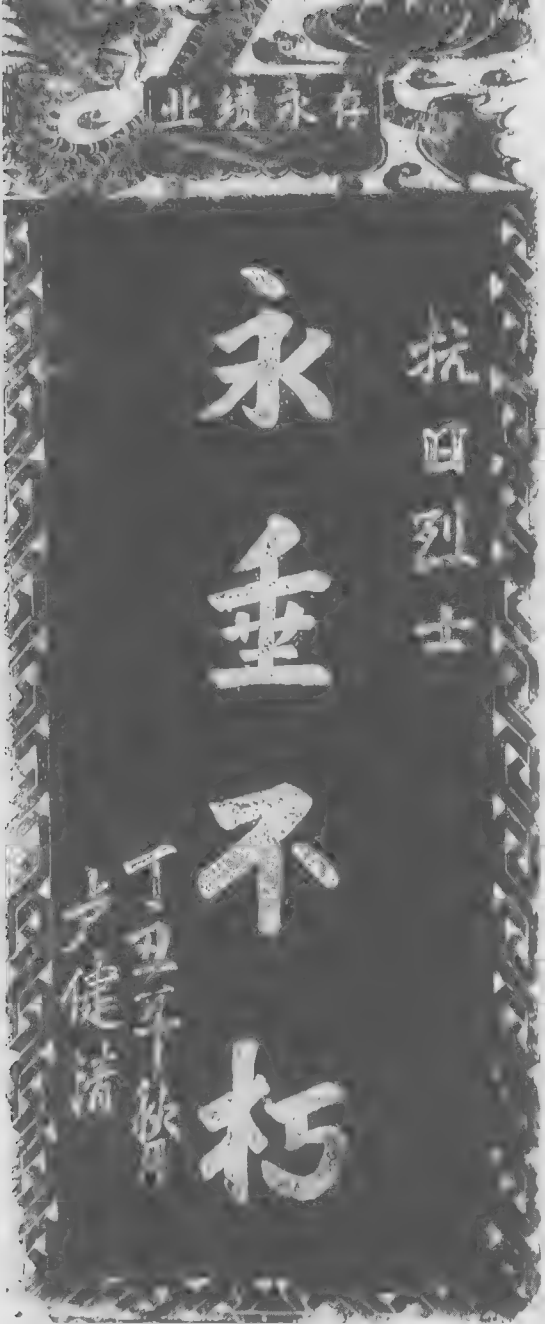 业绩永存
抗日烈士
永垂不朽
丁丑年秋月
卢健清